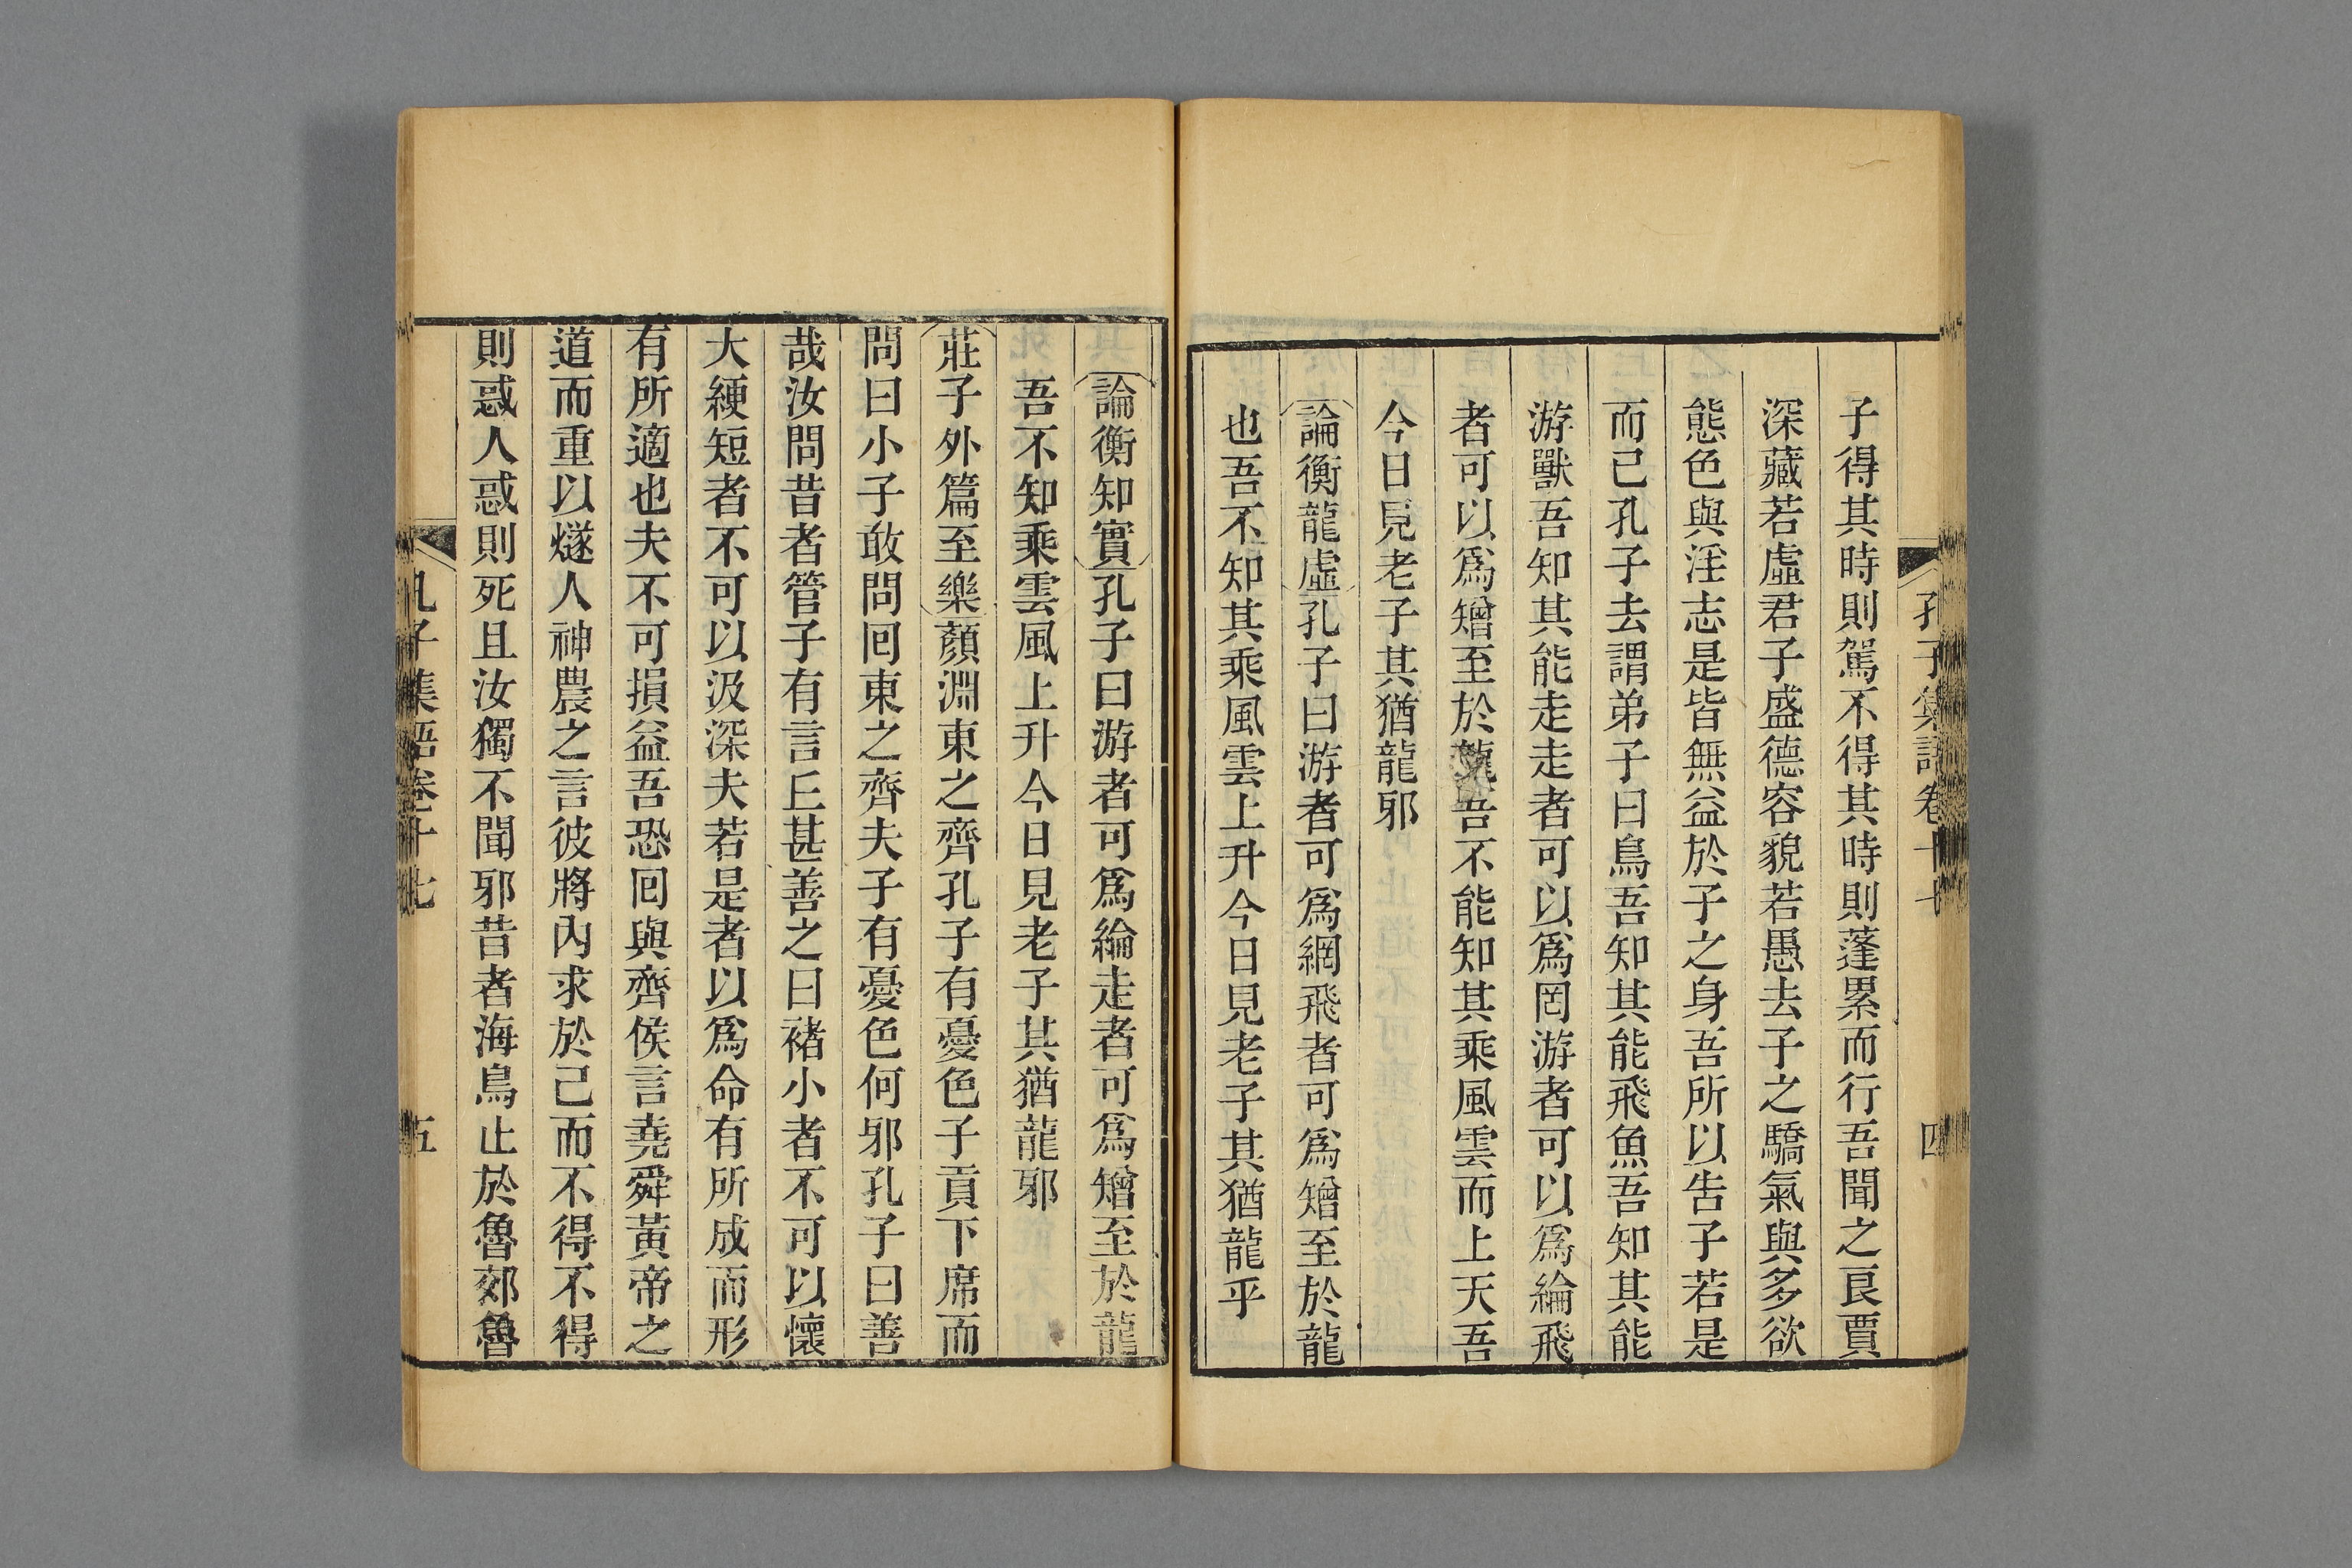 孔子集語卷十七 四
子得其時則駕不得其時則蓬累而行吾聞之良賈
深藏若虛君子盛德容貌若愚去子之驕氣與多欲
態色與淫志是皆無益於子之身吾所以告子若是
而已孔子去謂弟子曰鳥吾知其能飛魚吾知其能
游獸吾知其能走走者可以爲罔游者可以爲綸飛
者可以爲矰至於龍吾不能知其乘風雲而上天吾
今日見老子其猶龍邪
論衡龍虛孔子曰游者可爲網飛者可爲矰至於龍
也吾不知其乘風雲上升今日見老子其猶龍乎
論衡知實孔子曰游者可爲綸走者可爲矰至於龍
吾不知乘雲風上升今日見老子其猶龍邪
莊子外篇至樂顏淵東之齊孔子有憂色子貢下席而
問曰小子敢問回東之齊夫子有憂色何邪孔子曰善
哉汝問昔者管子有言丘甚善之曰褚小者不可以懷
大綆短者不可以汲深夫若是者以爲命有所成而形
有所適也夫不可損益吾恐回與齊侯言堯舜黃帝之
道而重以燧人神農之言彼將內求於己而不得不得
則惑人惑則死且汝獨不聞邪昔者海鳥止於魯郊魯
孔子集語卷十七 五